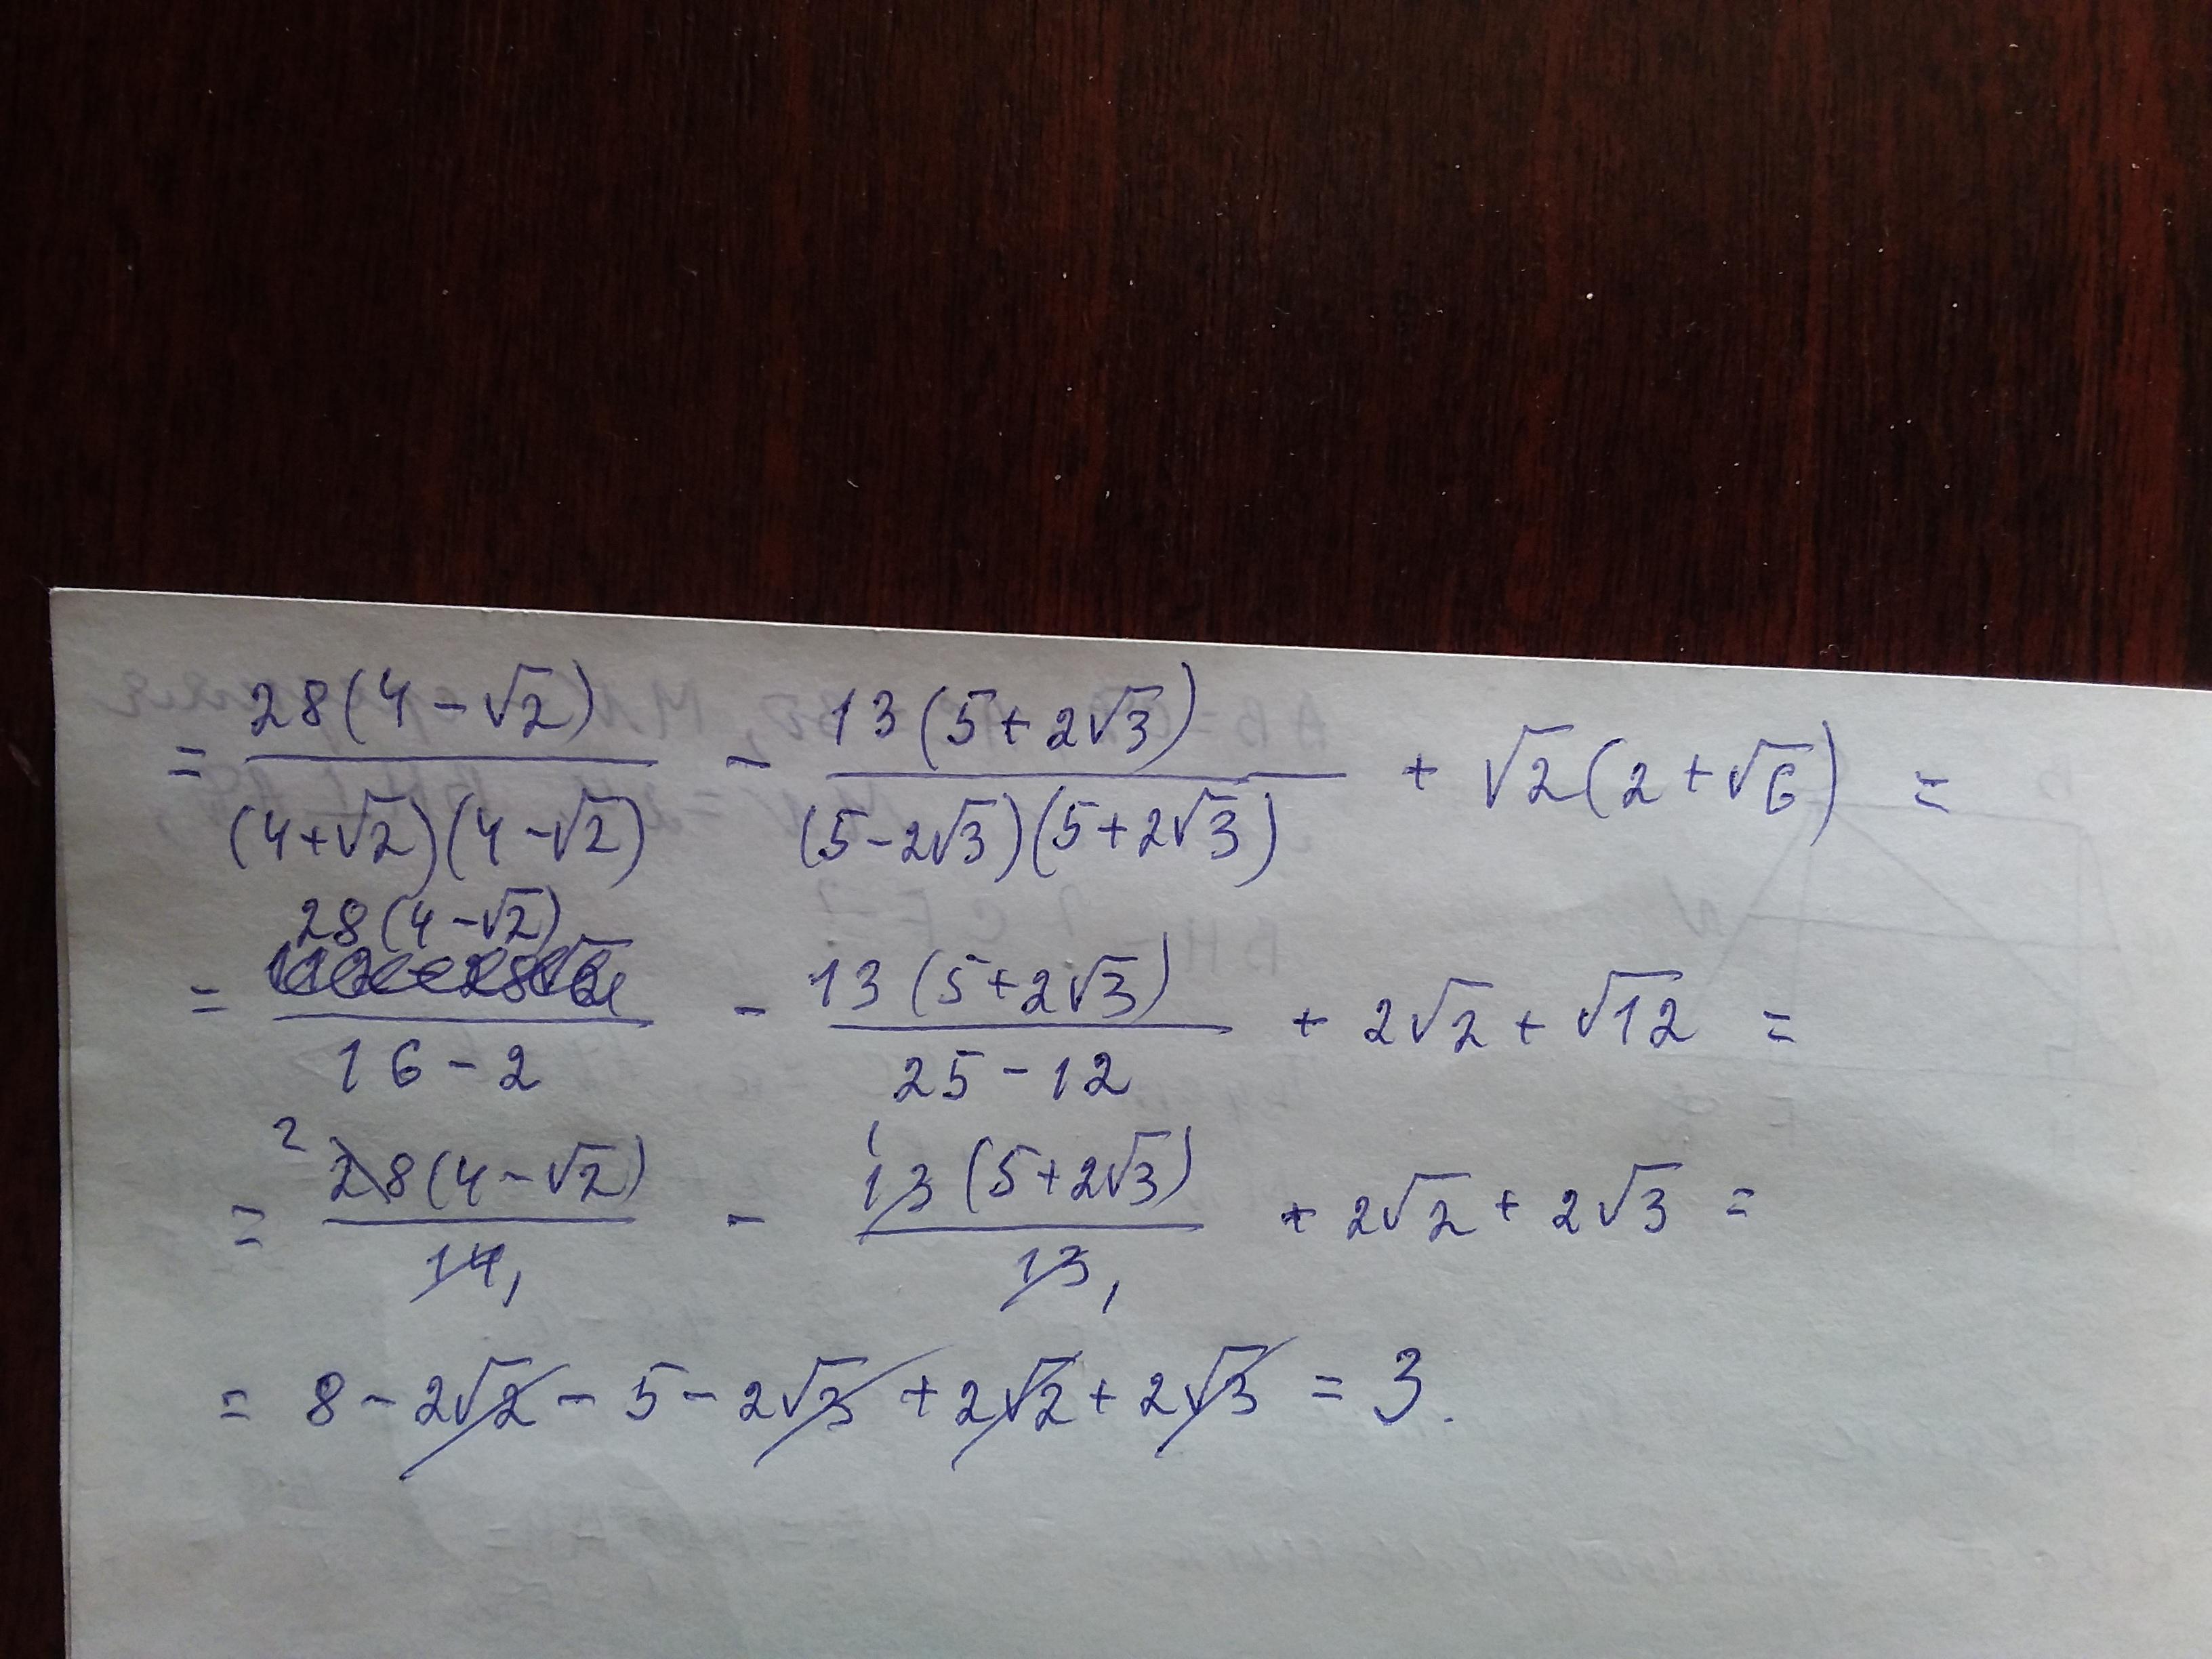 = 28(4-√2)/((4+√2)(4-√2)) - 13(5+2√3)/((5-2√3)(5+2√3)) + √2(2+√6) =
= 28(4-√2)/(16-2) - 13(5+2√3)/(25-12) + 2√2 + √12 =
= 2 28(4-√2)/14 1 - 1 13(5+2√3)/13 1 + 2√2 + 2√3 =
= 8 - 2√2 - 5 - 2√3 + 2√2 + 2√3 = 3.